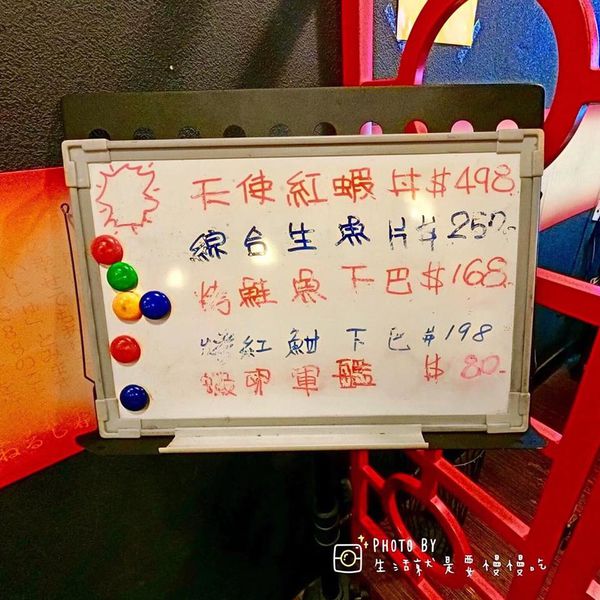 天使紅蝦丼$498.
綜合生魚片$250.-
烤鮭魚下巴$168.
烤紅魽下巴$198
蝦卵軍艦 $80.-
PHOTO BY
生活就是要慢慢吃